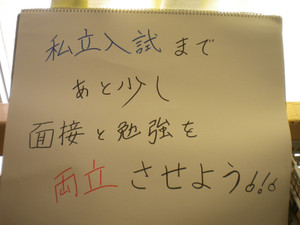 私立入試まで
あと少し
面接と勉強を
両立させよう!!!